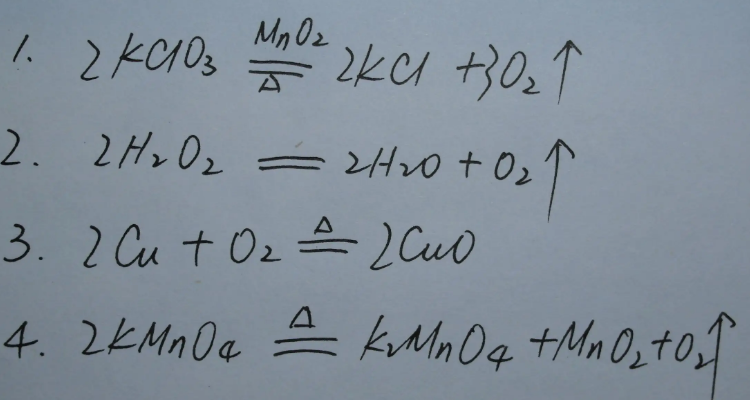 1. 2KClO₃ MnO₂ == △ 2KCl + 3O₂↑
2. 2H₂O₂ == 2H₂O + O₂↑
3. 2Cu + O₂ △ == 2CuO
4. 2KMnO₄ △ == K₂MnO₄ + MnO₂ + O₂↑